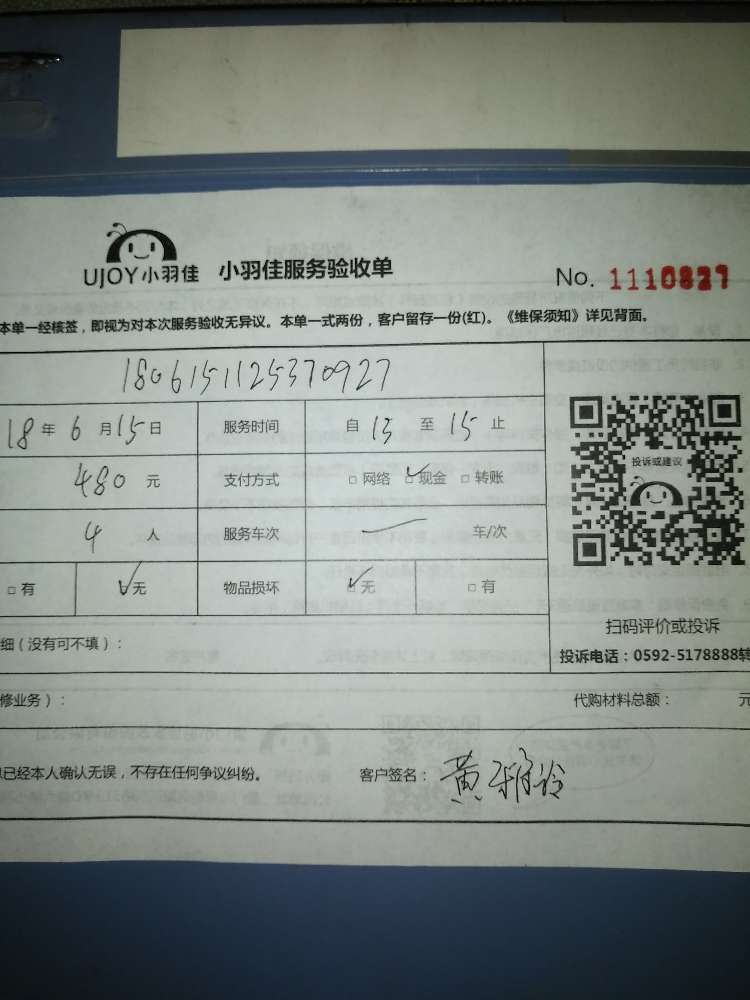 UJOY小羽佳 小羽佳服务验收单 No. 1110827
本单一经核签，即视为对本次服务验收无异议。本单一式两份，客户留存一份(红)。《维保须知》详见背面。
1806151125370927
18年6月15日 服务时间 自13至15止
480元 支付方式 □网络 ☑现金 □转账
4人 服务车次 — 车/次
□有 ☑无 物品损坏 ☑无 □有
投诉或建议
扫码评价或投诉
细（没有可不填）：
投诉电话：0592-5178888转
修业务）： 代购材料总额： 元
已经本人确认无误，不存在任何争议纠纷。 客户签名：黄雅铃